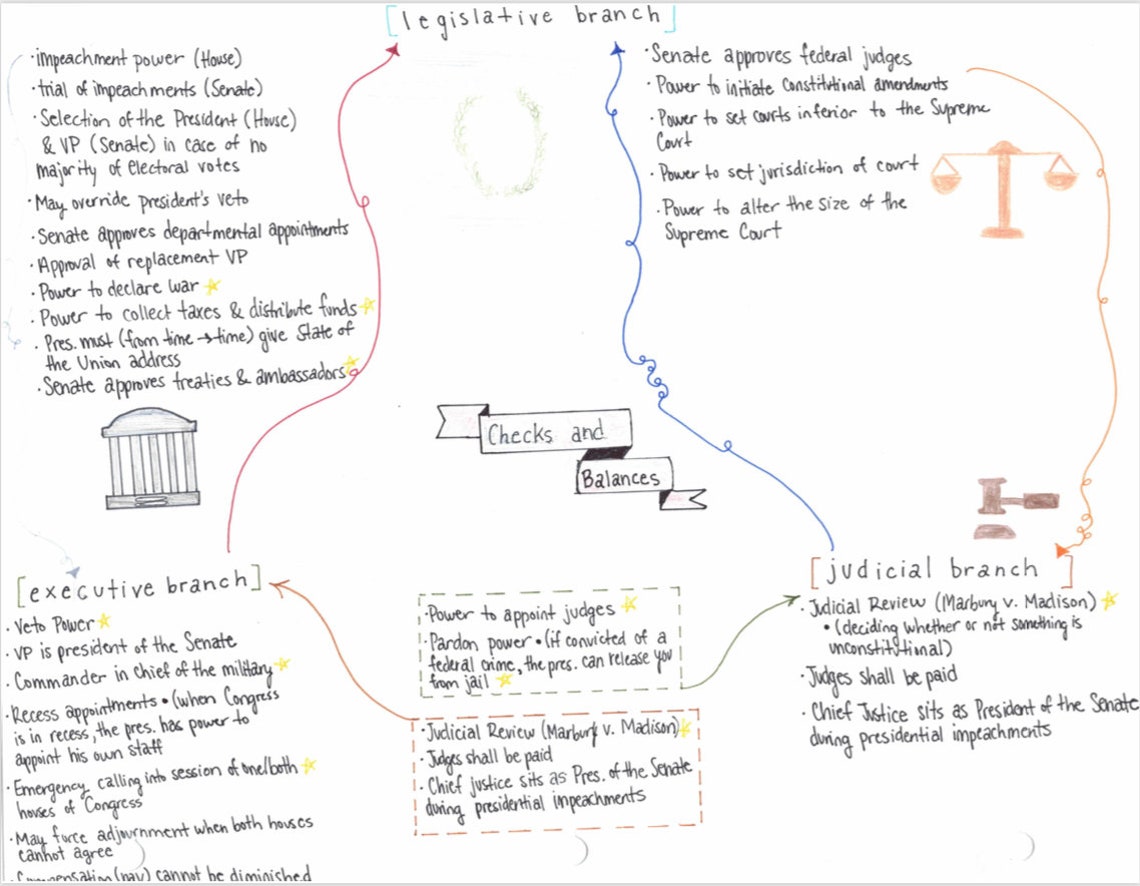 [legislative branch]
·impeachment power (House)
·trial of impeachments (Senate)
·Selection of the President (House)
& VP (Senate) in case of no
majority of electoral votes
·May override president's veto
·Senate approves departmental appointments
·Approval of replacement VP
·Power to declare war
·Power to collect taxes & distribute funds
·Pres. must (from time → time) give State of
the Union address
·Senate approves treaties & ambassadors
·Senate approves federal judges
·Power to initiate Constitutional amendments
·Power to set courts inferior to the Supreme
Court
·Power to set jurisdiction of court
·Power to alter the size of the
Supreme Court
Checks and
Balances
[executive branch]
·Veto Power
·VP is president of the Senate
·Commander in chief of the military
·Recess appointments •(when Congress
is in recess, the pres. has power to
appoint his own staff
·Emergency calling into session of one/both
houses of Congress
·May force adjournment when both houses
cannot agree
·Compensation (pay) cannot be diminished
·Power to appoint judges
·Pardon power •(if convicted of a
federal crime, the pres. can release you
from jail
·Judicial Review (Marbury v. Madison)
·Judges shall be paid
·Chief justice sits as Pres. of the Senate
during presidential impeachments
[judicial branch]
·Judicial Review (Marbury v. Madison)
•(deciding whether or not something is
unconstitutional)
·Judges shall be paid
·Chief Justice sits as President of the Senate
during presidential impeachments